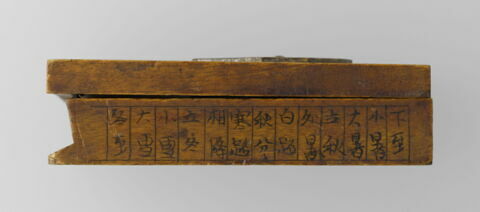 下至
小暑
大暑
立秋
処暑
白露
秋分
寒露
相降
立冬
小雪
大雪
冬至